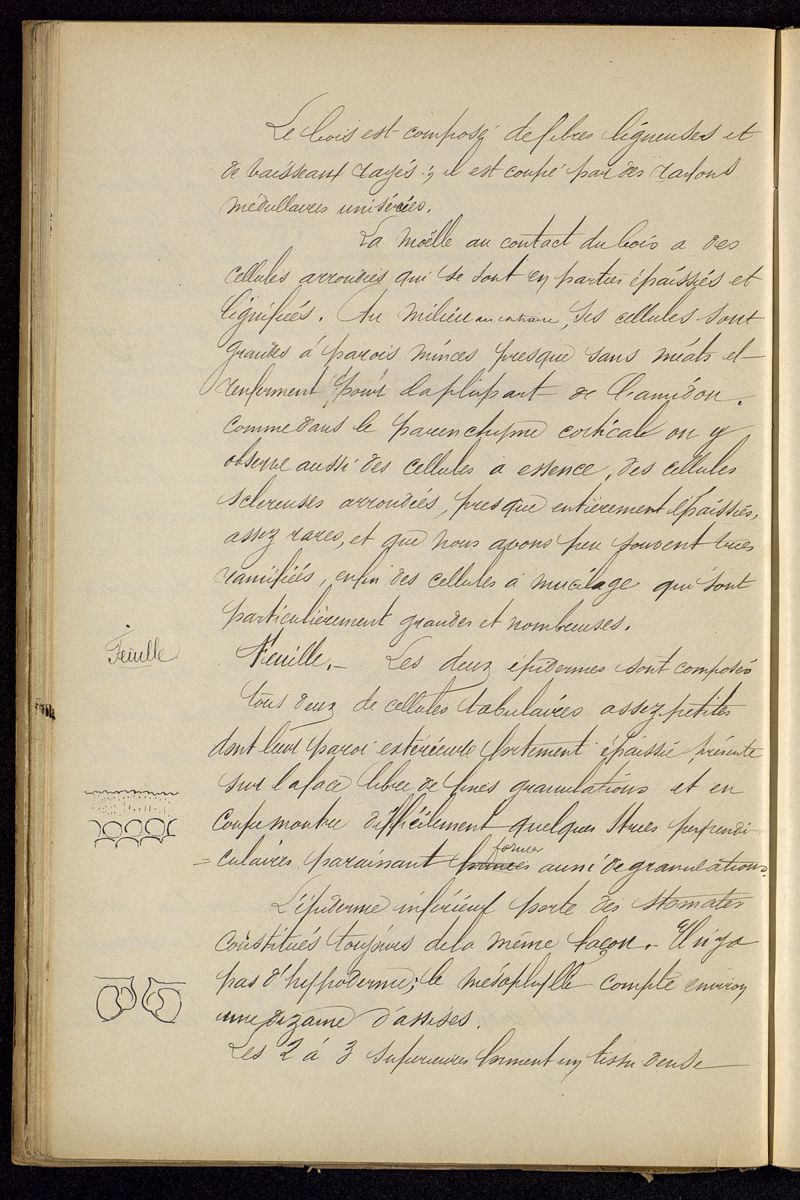 Le bois est composé de fibres ligneuses et
de vaisseaux rayés ; il est coupé par des rayons
médullaires unisériées.
La moëlle au contact du bois a des
cellules arrondies qui se sont en parties épaissiés et
lignifiées. Au milieu au contraire, ses cellules sont
grandes à parois minces presque sans méats et
renferment pour la plupart de l'amidon.
Comme dans le parenchyme cortical on y
observe aussi des cellules a essence, des cellules
sclereuses arrondiés, presque entièrement épaissies,
assez rares, et que nous avons peu souvent vues
ramifiées, enfin des cellules à mucilage qui sont
particulièrement grandes et nombreuses.
Feuille
Feuille. — Les deux épidermes sont composés
tous deux de cellules tabulaires assez petites
dont leur paroi extérieure fortement épaissie présente
sur la face libre de fines granulations et en
coupe montre difficilement quelques stries perpendi
= culaires paraissant former aussi de granulations.
L'épiderme inférieur porte des stomates
constitués toujours de la même façon. Il n'y a
pas d'hypoderme ; le mésophylle compte environ
une dizaine d'assises.
Les 2 à 3 supérieures forment un tissu dense